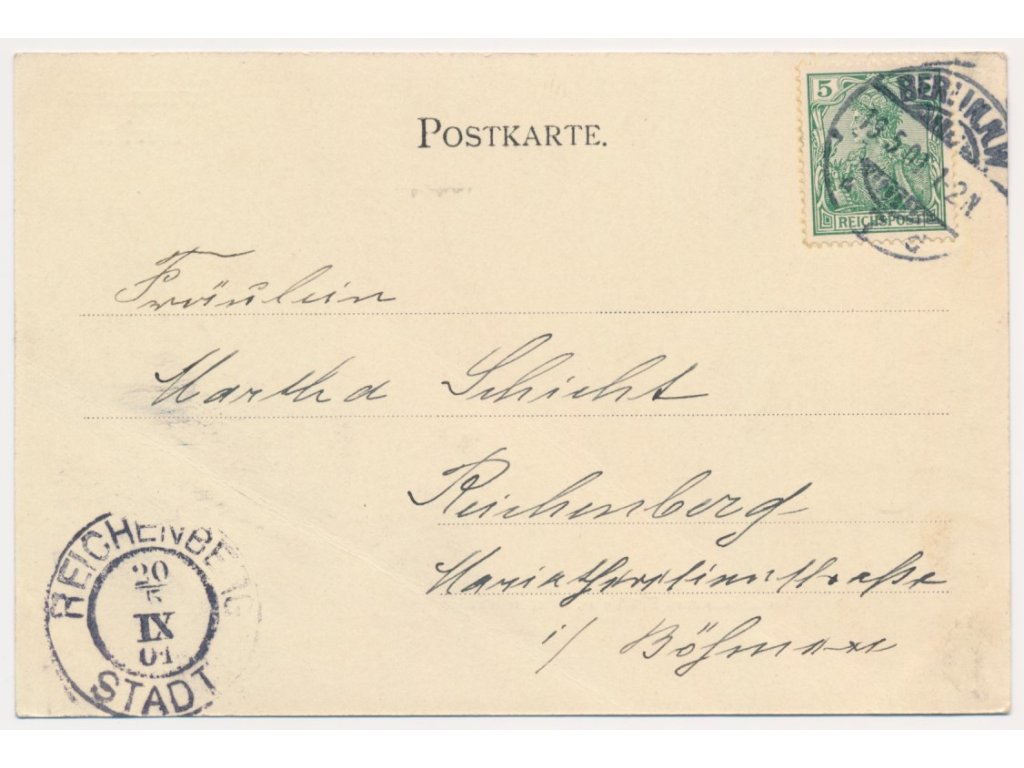 POSTKARTE.
5
REICHSPOST
BERLIN.N.W
19.5.01. 1-2N.
Fräulein
Martha Schicht
Reichenberg
Mariatheresienstraße
i/ Böhmen
REICHENBERG
20
5
IX
01
STADT